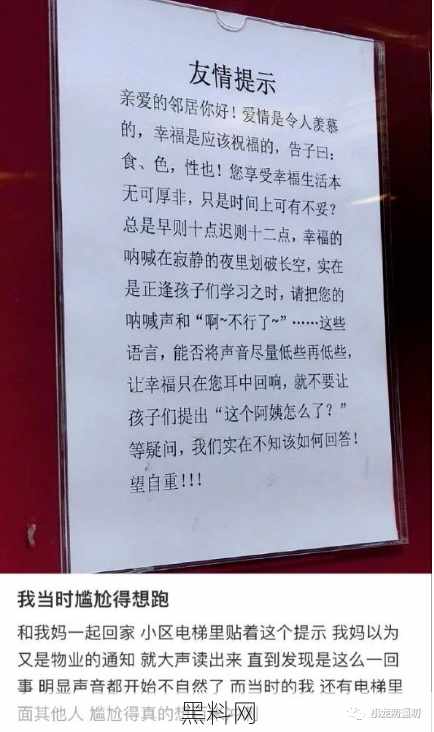 友情提示
亲爱的邻居你好！爱情是令人羡慕
的，幸福是应该祝福的，告子曰：
食、色，性也！您享受幸福生活本
无可厚非，只是时间上可有不妥？
总是早则十点迟则十二点，幸福的
呐喊在寂静的夜里划破长空，实在
是正逢孩子们学习之时，请把您的
呐喊声和“啊~不行了~”……这些
语言，能否将声音尽量低些再低些，
让幸福只在您耳中回响，就不要让
孩子们提出“这个阿姨怎么了？”
等疑问，我们实在不知该如何回答！
望自重！！！
我当时尴尬得想跑
和我妈一起回家 小区电梯里贴着这个提示 我妈以为
又是物业的通知 就大声读出来 直到发现是这么一回
事 明显声音都开始不自然了 而当时的我 还有电梯里
面其他人 尴尬得真的想
黑料网